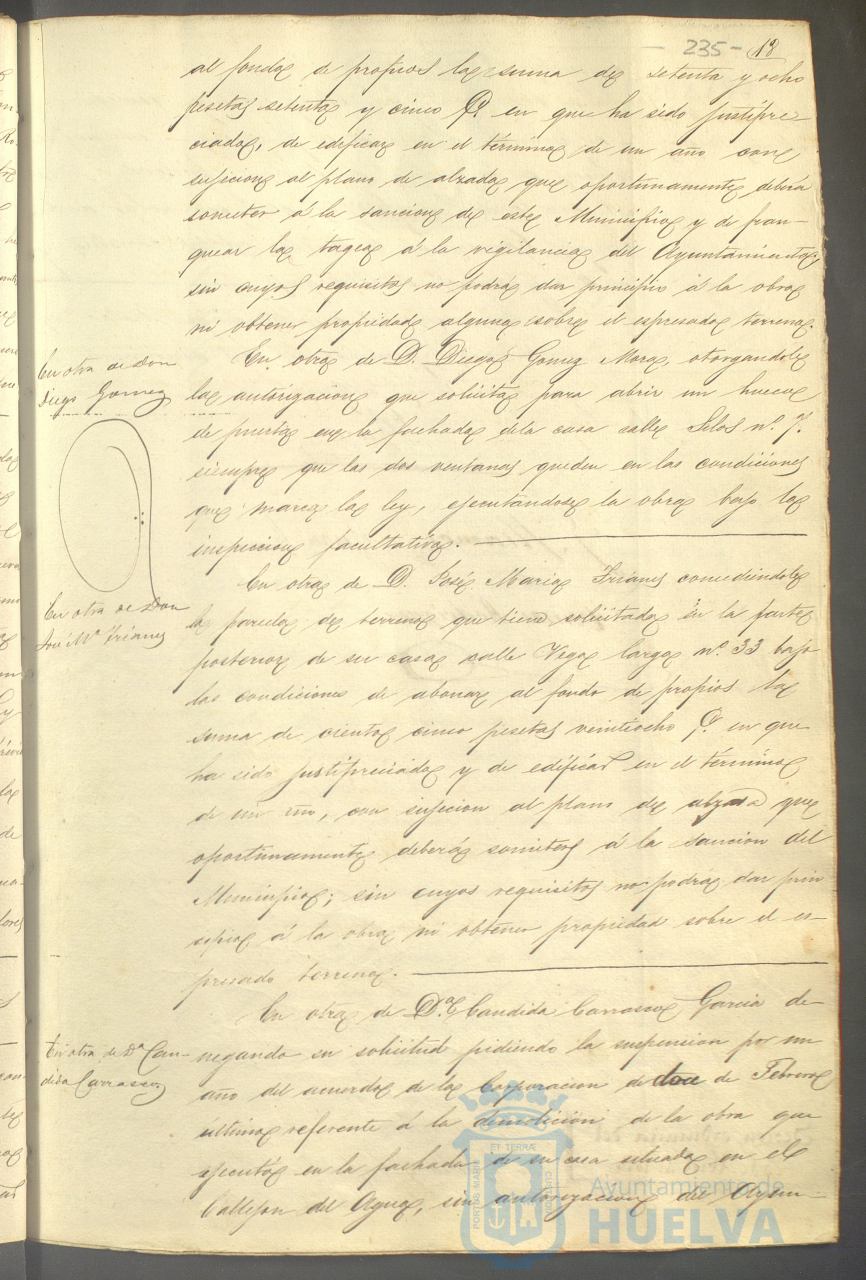 - 235 - 18
al fondo de propios la suma de setenta y ocho
pesetas setenta y cinco Cs. en que ha sido justipre
ciado, de edificar en el término de un año con
sujecion al plano de alzada que oportunamente deberá
someter á la sancion de este Municipio y de fran-
quear la tagea á la vigilancia del Ayuntamiento;
sin cuyos requisitos no podrá dar principio á la obra
ni obtener propiedad alguna sobre el espresado terreno.
En otra de Don
Diego Gomez
En otra de D. Diego Gomez Mora, otorgandole
la autorizacion que solicita para abrir un hueco
de puerta en la fachada de la casa calle Silos nº. 7.
siempre que las dos ventanas queden en las condiciones
que marca la ley, ejecutándose la obra bajo la
inspeccion facultativa.
En otra de Don
José Mª Trianes
En otra de D. José Maria Trianes concediéndole
la parcela de terreno que tiene solicitada en la parte
posterior de su casa calle Vega larga nº. 33 bajo
las condiciones de abonar al fondo de propios la
suma de ciento cinco pesetas veintiocho Cs. en que
ha sido justipreciado y de edificar en el término
de un año, con sujecion al plano de alzada que
oportunamente deberá someter á la sancion del
Municipio; sin cuyos requisitos no podrá dar prin
cipio á la obra ni obtener propiedad sobre el es-
presado terreno.
En otra de Dª Can-
dida Carrasco
En otra de Dª. Candida Carrasco Garcia de-
negando su solicitud pidiendo la suspension por un
año del acuerdo de la Corporacion de doce de Febrero
último referente á la demolicion de la obra que
ejecutó en la fachada de su casa situada en el
Callejon del Agua, sin autorizacion del Ayun-
PORTUS MARIS ET TERRÆ CUSTODIA
Ayuntamiento de
HUELVA